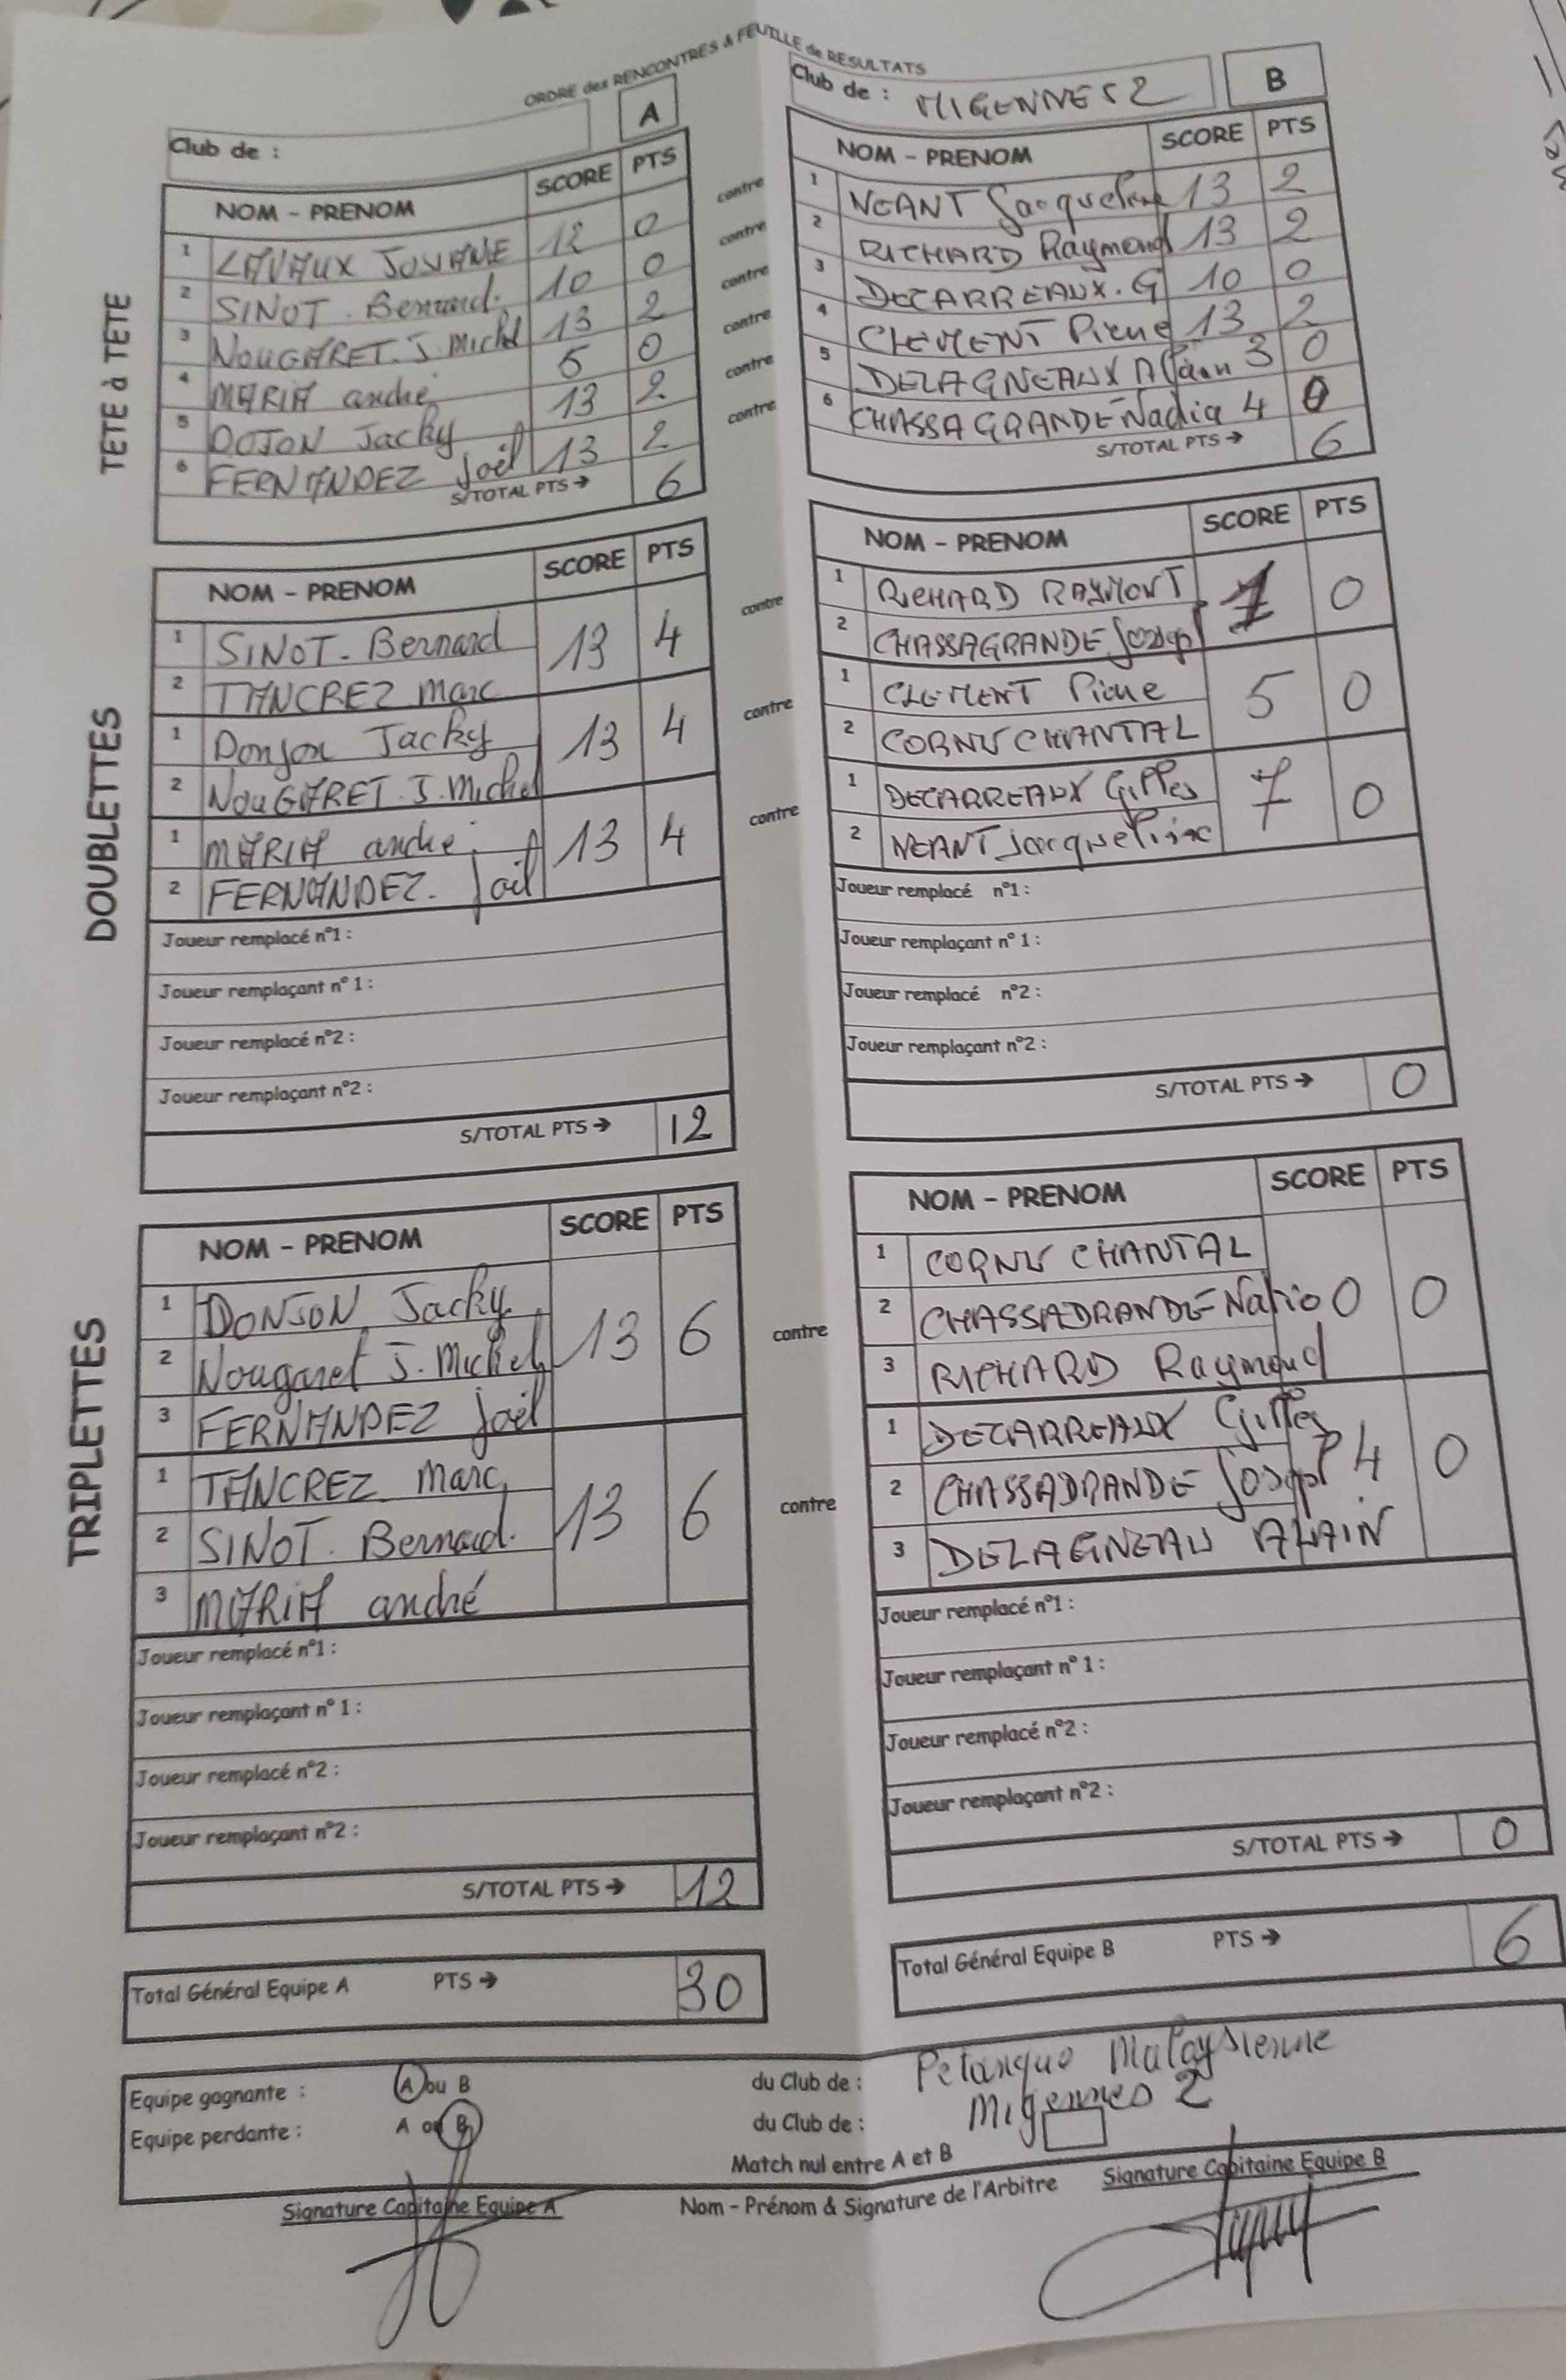 ORDRE des RENCONTRES & FEUILLE de RESULTATS
Club de :
A
NOM - PRENOM SCORE PTS
TETE à TETE
1 LAVAUX JOSIANE 12 0
2 SINOT. Bernard. 10 0
3 NOUGARET. J. Michel 13 2
4 MARIA andré 5 0
5 DOJON Jacky 13 2
6 FERNANDEZ Joël 13 2
S/TOTAL PTS → 6
contre
contre
contre
contre
contre
contre
Club de : MIGENNES 2
B
NOM - PRENOM SCORE PTS
1 NEANT Jacqueline 13 2
2 RICHARD Raymond 13 2
3 DECARREAUX. G 10 0
4 CLEMENT Pierre 13 2
5 DELAGNEAUX Alain 3 0
6 CHASSAGRANDE Nadia 4 0
S/TOTAL PTS → 6
DOUBLETTES
NOM - PRENOM SCORE PTS
1 SINOT. Bernard 13 4
2 TANCREZ Marc
1 Donjon Jacky 13 4
2 NOUGARET. J. Michel
1 MARIA andré. 13 4
2 FERNANDEZ. Joël
Joueur remplacé n°1 :
Joueur remplaçant n° 1 :
Joueur remplacé n°2 :
Joueur remplaçant n°2 :
S/TOTAL PTS → 12
contre
contre
contre
NOM - PRENOM SCORE PTS
1 RICHARD RAYMONT 0
2 CHASSAGRANDE Josep
1 CLEMENT Pierre 5 0
2 CORNU CHANTAL
1 DECARREAUX Gilles 7 0
2 NEANT Jacqueline
Joueur remplacé n°1 :
Joueur remplaçant n° 1 :
Joueur remplacé n°2 :
Joueur remplaçant n°2 :
S/TOTAL PTS → 0
TRIPLETTES
NOM - PRENOM SCORE PTS
1 DONJON Jacky
2 Nougaret J. Michel 13 6
3 FERNANDEZ Joël
1 TANCREZ Marc
2 SINOT. Bernard. 13 6
3 MARIA andré
Joueur remplacé n°1 :
Joueur remplaçant n° 1 :
Joueur remplacé n°2 :
Joueur remplaçant n°2 :
S/TOTAL PTS → 12
contre
contre
NOM - PRENOM SCORE PTS
1 CORNU CHANTAL
2 CHASSADRANDE 0 0
3 RICHARD Raymond
1 DECARREAUX Gilles
2 CHASSADRANDE Josep 4 0
3 DELAGNEAU ALAIN
Joueur remplacé n°1 :
Joueur remplaçant n° 1 :
Joueur remplacé n°2 :
Joueur remplaçant n°2 :
S/TOTAL PTS → 0
Total Général Equipe A PTS → 30
Total Général Equipe B PTS → 6
Equipe gagnante : A ou B du Club de : Petanque Malaysienne
Equipe perdante : A ou B du Club de : Migennes 2
Match nul entre A et B
Signature Capitaine Equipe A
Nom - Prénom & Signature de l'Arbitre
Signature Capitaine Equipe B